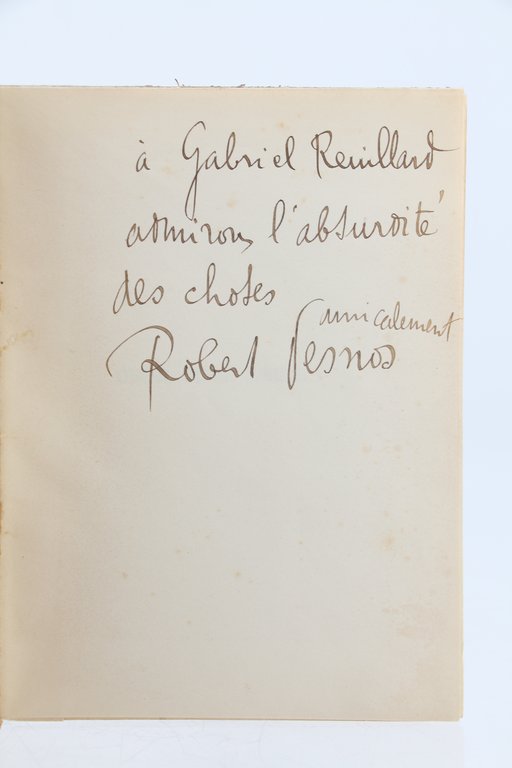 à Gabriel Reuillard
admirons l'absurdité
des choses
amicalement
Robert Desnos